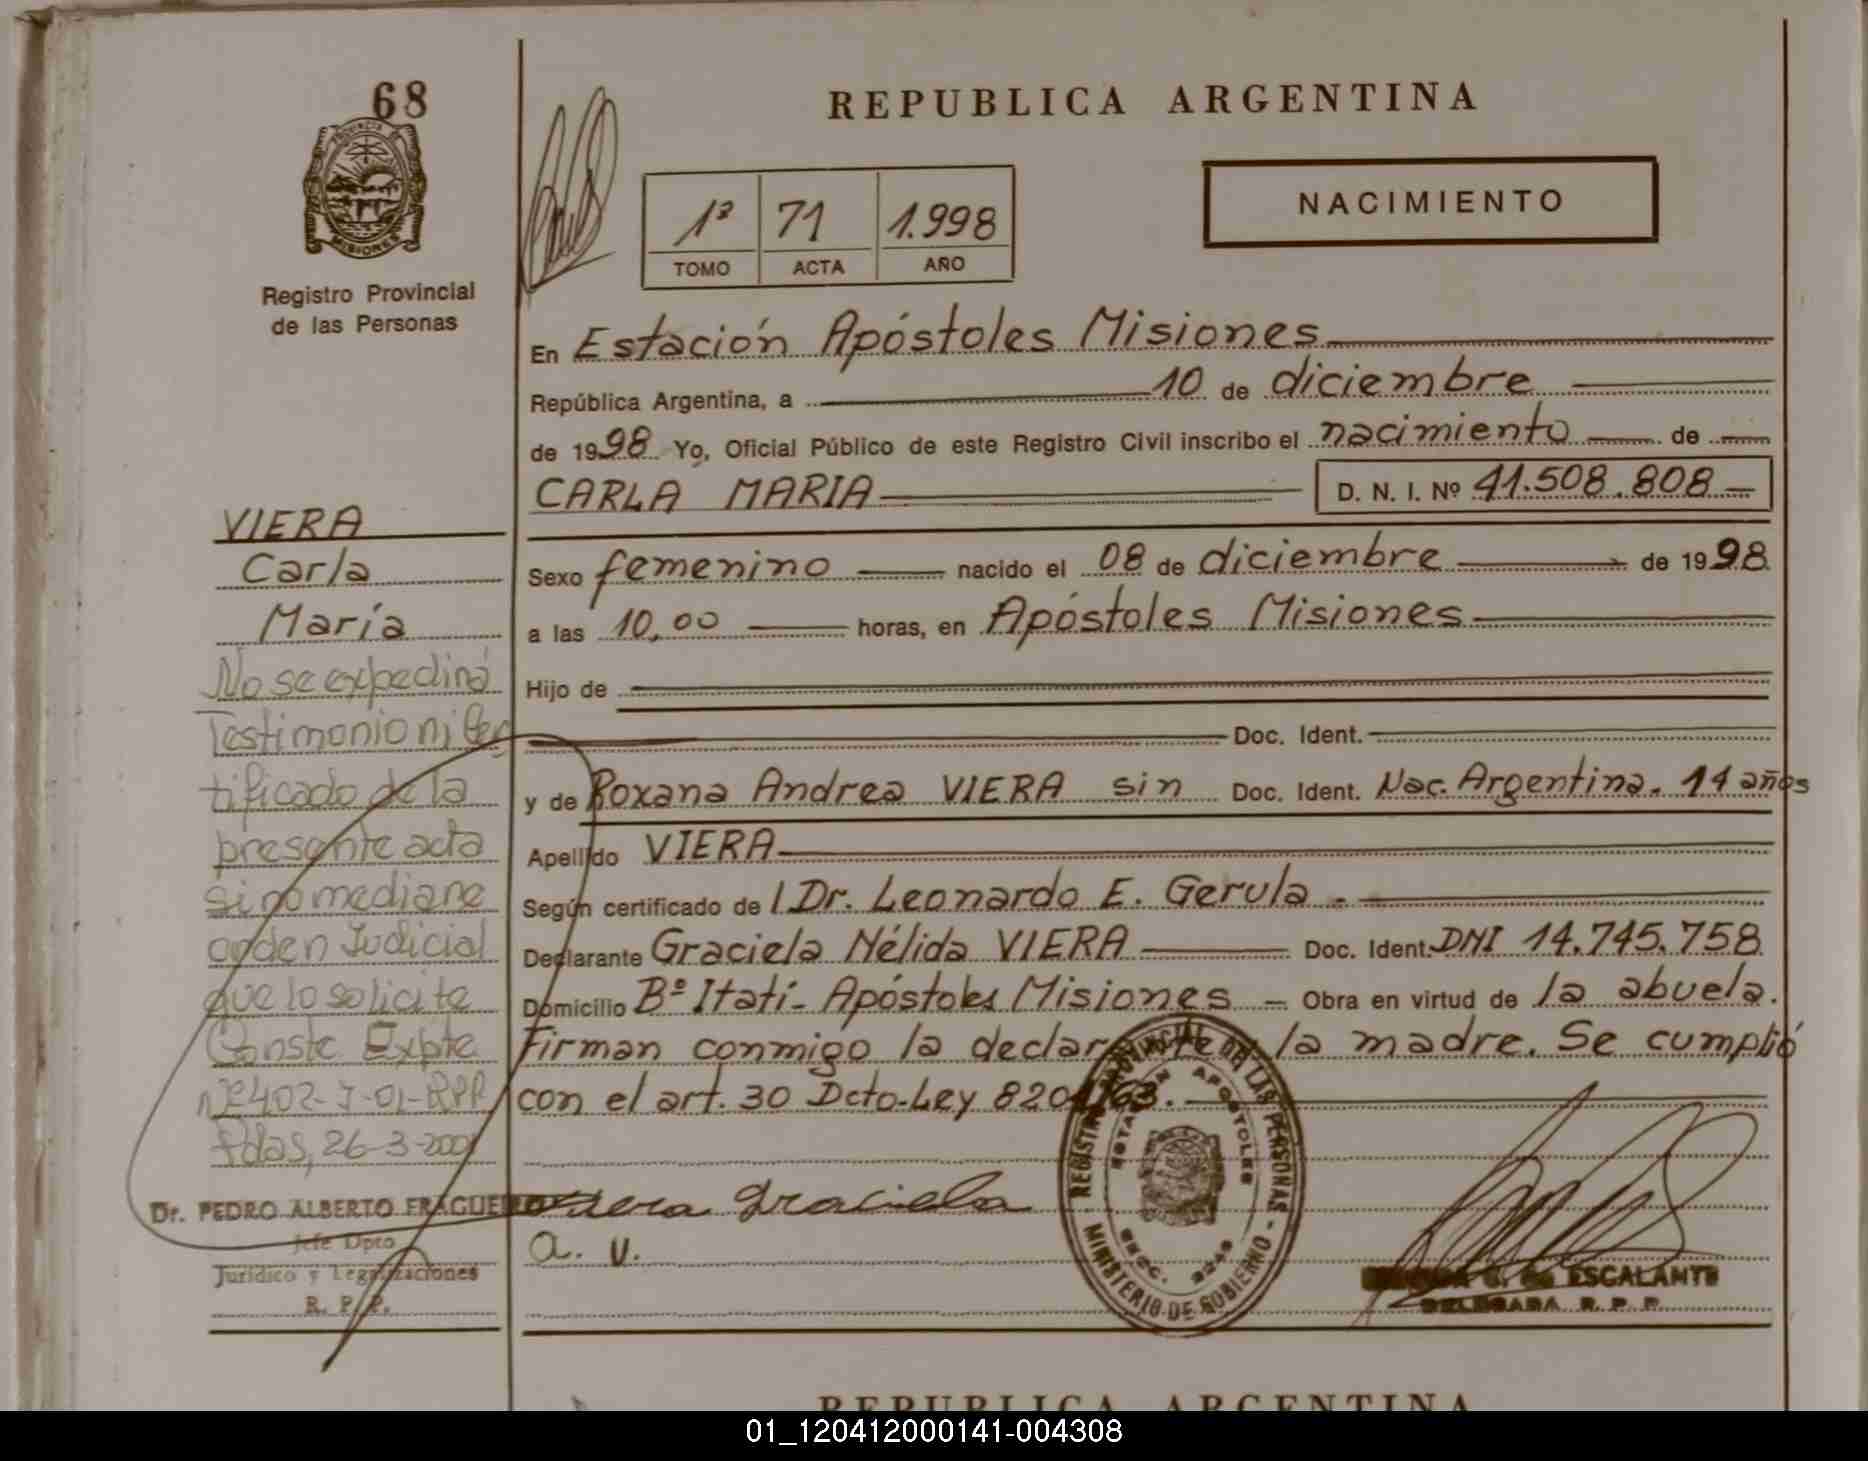 68
PROVINCIA DE
MISIONES
Registro Provincial
de las Personas
REPUBLICA ARGENTINA
1º 71 1.998
TOMO ACTA AÑO
NACIMIENTO
En Estación Apóstoles Misiones
República Argentina, a 10 de diciembre
de 1998 Yo, Oficial Público de este Registro Civil inscribo el nacimiento de
CARLA MARIA D. N. I. Nº 41.508.808
Sexo femenino nacido el 08 de diciembre de 1998
a las 10,00 horas, en Apóstoles Misiones
Hijo de
Doc. Ident.
y de Roxana Andrea VIERA sin Doc. Ident. Nac. Argentina. 14 años
Apellido VIERA
Según certificado de l Dr. Leonardo E. Gerula.
Declarante Graciela Nélida VIERA Doc. Ident. DNI 14.745.758
Domicilio Bº Itatí - Apóstoles Misiones - Obra en virtud de la abuela.
Firman conmigo la declarante la madre. Se cumplió
con el art. 30 Dcto-Ley 8204/63.
Viera Graciela
a. v.
REGISTRO PROVINCIAL DE LAS PERSONAS - MINISTERIO DE GOBIERNO
ESTACION APOSTOLES
ESCALANTE
DELEGADA R. P. P.
VIERA
Carla
María
No se expedirá
Testimonio ni Cer
tificado de la
presente acta
sino mediane
orden Judicial
que lo solicite
Conste Expte
Nº 402-J-01-RPP
Pdas, 26-3-2001
Dr. PEDRO ALBERTO FRAGUEIRO
Jefe Dpto
Jurídico y Legalizaciones
R. P. P.
REPUBLICA ARGENTINA
01_120412000141-004308